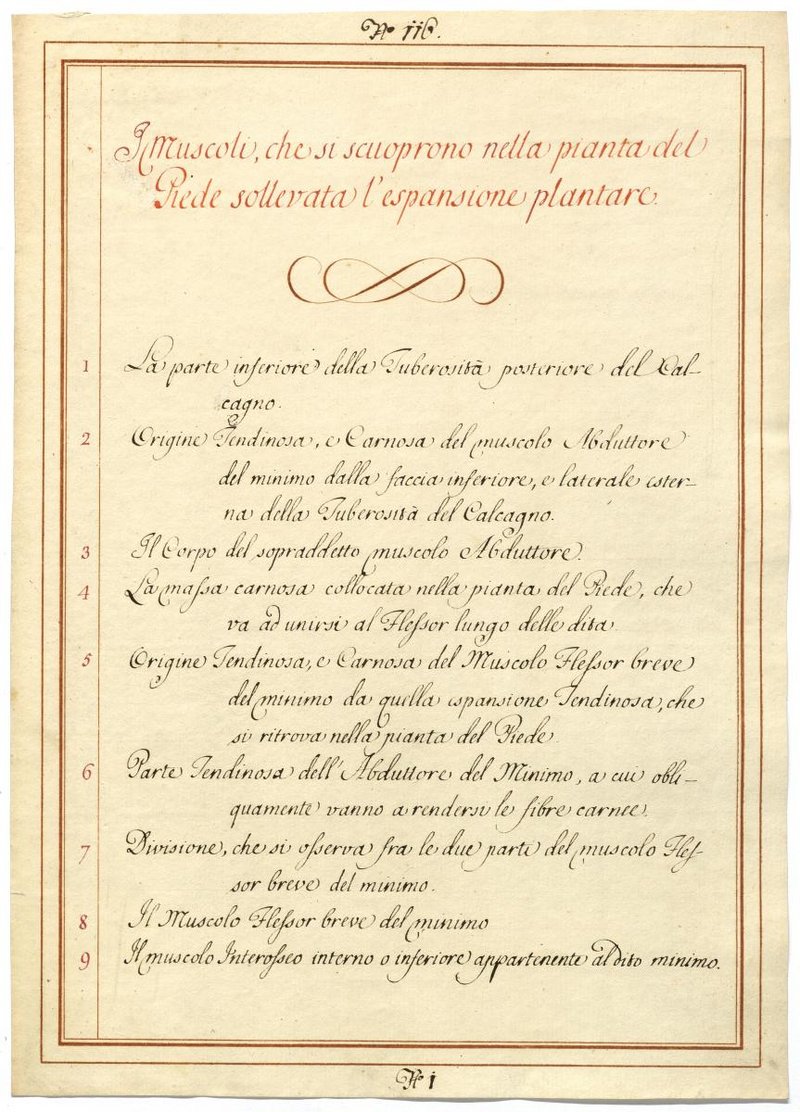 No. 116.
I Muscoli, che si scuoprono nella pianta del
Piede sollevata l'espansione plantare.
1 La parte inferiore della Tuberosità posteriore del Cal-
cagno.
2 Origine Tendinosa, e Carnosa del muscolo Abduttore
del minimo dalla faccia inferiore, e laterale ester-
na della Tuberosità del Calcagno.
3 Il Corpo del sopraddetto muscolo Abduttore.
4 La massa carnosa collocata nella pianta del Piede, che
va ad unirsi al Flessor lungo delle dita.
5 Origine Tendinosa, e Carnosa del Muscolo Flessor breve
del minimo da quella espansione Tendinosa, che
si ritrova nella pianta del Piede.
6 Parte Tendinosa dell'Abduttore del Minimo, a cui obli-
quamente vanno a rendersi le fibre carnee.
7 Divisione, che si osserva fra le due parti del muscolo Fles-
sor breve del minimo.
8 Il Muscolo Flessor breve del minimo
9 Il muscolo Interosseo interno o inferiore appartenente al dito minimo.
No. 1